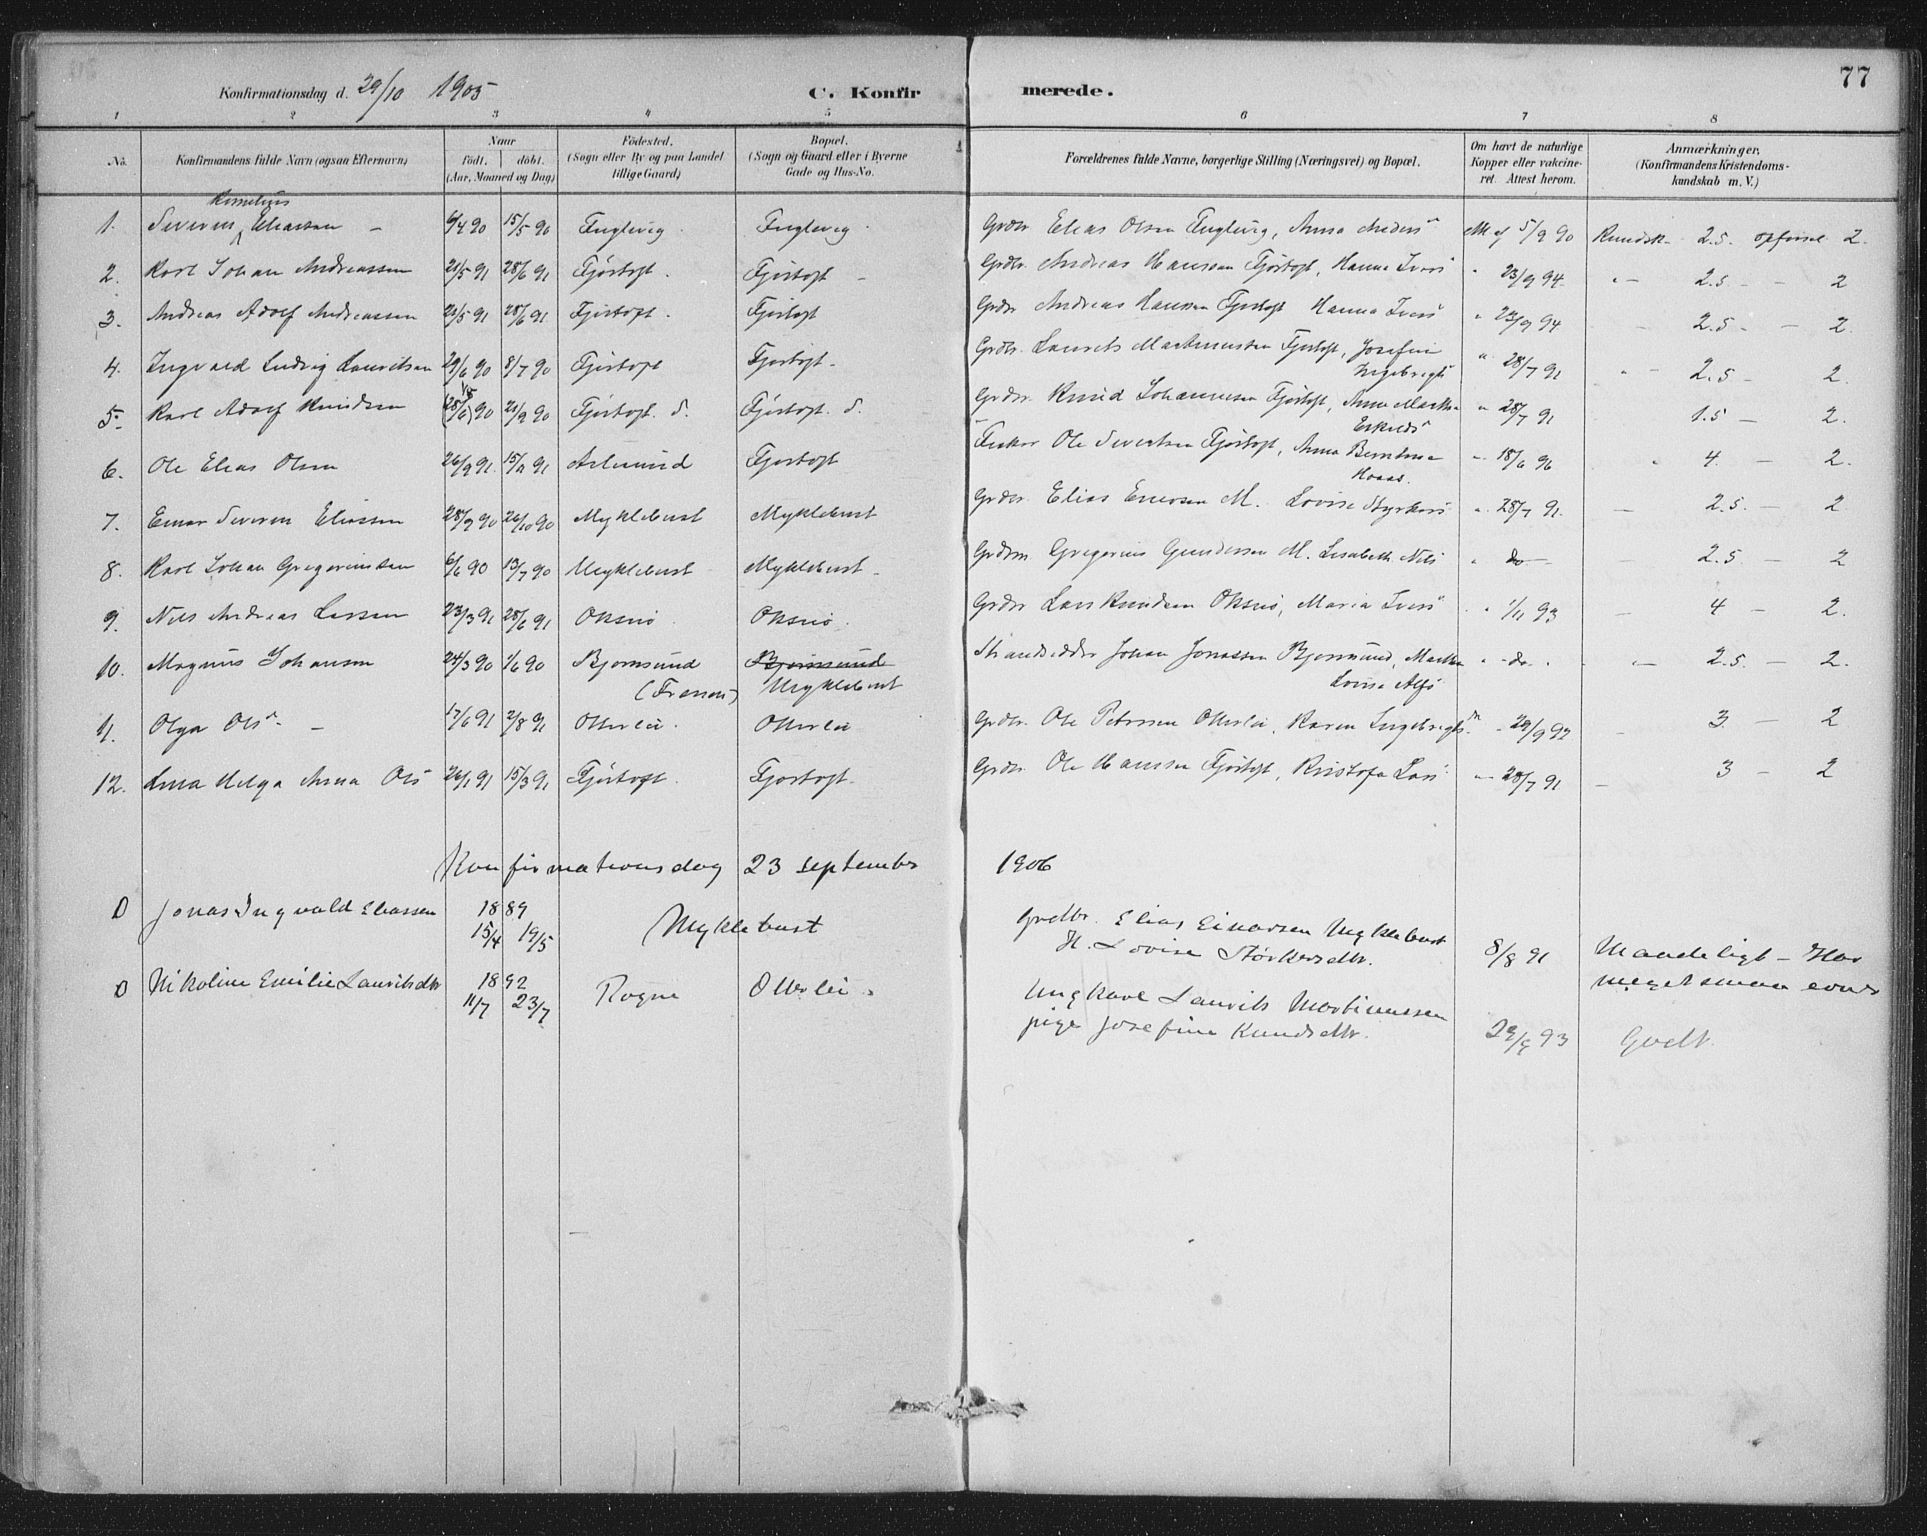 77
Konfirmationsdag d. 29/10 1905
C. Konfirmerede.
1 2 3 4 5 6 7 8
No. Konfirmandens fulde Navn (ogsaa Efternavn) Naar födt. döbt. (Aar, Maaned og Dag) Födested. (Sogn eller By og paa Landet tillige Gaard) Bopæl. (Sogn og Gaard eller i Byerne Gade og Hus-No. Forældrenes fulde Navne, borgerlige Stilling (Næringsvei) og Bopæl. Om havt de naturlige Kopper eller vakcineret. Attest herom. Anmærkninger, (Konfirmandens Kristendomskundskab m. V.)
Kornelius
1. Severin Eliassen 6/4 90 15/5 90 Fuglevig Fuglevig Grdbr. Elias Olsen Fuglevig, Anna Anders 5/9 90 Kundsk. 2.5. opförsel 2.
2. Karl Johan Andreassen 21/5 91 28/6 91 Fjörtoft Fjörtoft Grdbr. Andreas Hanssen Fjörtoft, Hanna Ivers " 23/9 94 2.5 - 2
3. Andreas Adolf Andreassen 21/5 91 28/6 91 Fjörtoft. Fjörtoft Grdbr. Andreas Hanssen Fjörtoft Hanna Ivers " 23/9 94 2.5 - 2.
4. Ingvald Ludvig Lauritsen 29/6 90 8/7 90 Fjörtoft Fjörtoft Grdbr. Laurits Martinussen Fjörtoft, Josefine Ingebrigts " 28/7 91 2.5 - 2.
5. Karl Adolf Knudsen 90 21/9 90 Fjörtoft. S. Fjörtoft. S. Grdbr. Knud Johannesen Fjörtoft, Anna Martha Eskilds " 28/7 91 1.5 - 2.
6. Ole Elias Olsen 26/9 91 91 Aalesund Fjortoft Fisker Ole Severtsen Fjörtoft, Anna Berntine Hoaas. 18/6 96 4. - 2.
7. Einar Severin Eliassen 28/9 90 26/10 90 Myklebust Myklebust Grdbr. Elias Einarsen M. Lovise Styrkers " 28/7 91. 2.5. - 2
8. Karl Johan Gregoriussen 6/6 90 13/7 90 Myklebust Myklebust Grdbr. Gregorius Gundersen M. Lisabeth Nils " do 2.5 - 2
9. Nils Andreas Larsen 23/3 91 28/6 91 Oksnö Oksnö. Grdbr Lars Knudsen Oksnö, Maria Ivers " 1/11 93 4 - 2.
10. Magnus Johansen 24/3 90 1/6 90 Bjornsund (Frænen) Bjornsund Myklebust Strandsidder Johan Jonassen Bjornsund, Martha Lovise Alfs " do 2.5. - 2.
11. Olga Ols 17/6 91 2/8 91 Otterlei. Otterlei Grdbr. Ole Petersen Otterlei, Karen Ingebrigts 29/9 92 3 - 2
12. Lina Helga Anna Ols 26/1 91 15/3 91 Fjörtoft. Fjortoft. Grdbr. Ole Hanssen Fjörtoft, Kristofa Lars 28/7 91 3 - 2
Konfirmationsdag 23 september 1906
D Jonas Ingvald Eliassen 1889 15/4 19/5 Myklebust Grdbr. Elias Einarsen Myklebust H. Lovise Störkersdtr. 8/8 91 Maadeligt - Har meget smaa evner
D Nikoline Emilie Lauritsdtr 1892 11/7 23/7 Rogne Otterlei. Ungkarl Laurits Martinussen pige Josefine Knudsdtr. 29/9 93 Godt.